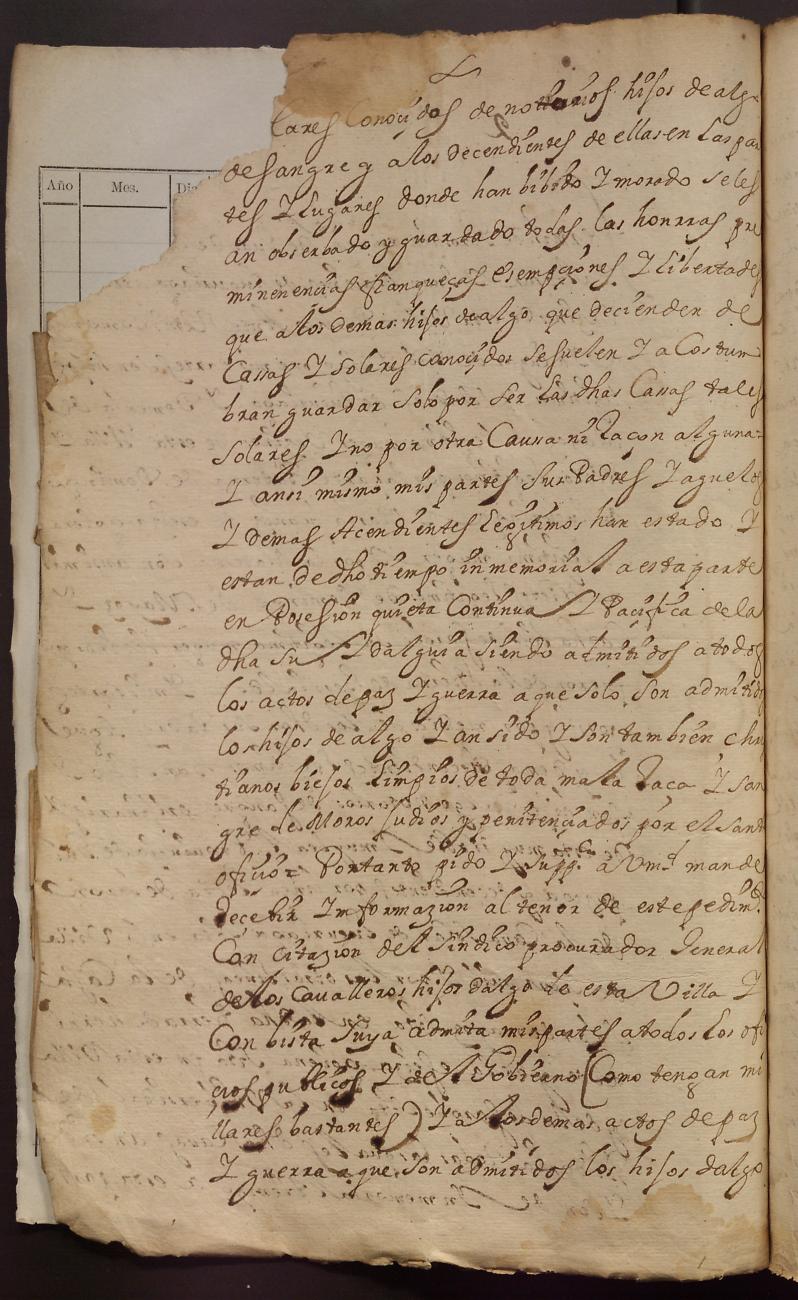 Año Mes. Dia
lares Conoçidos de nottorios hisos de alg
de Sangre y a los decendientes de ellas en las par
tes Y Lugares donde han bibido Y morado se les
an obserbado y guardado todas las honrras pre
minenencias franqueças esempçiones Y Libertades
que a los demas hisos de algo que decienden de
Cassas Y solares conoçidos se suelen Y a Costum
bran guardar solo por ser las dhas Cassas tales
solares Y no por otra Caussa ni Raçon alguna=
Y ansi mismo mis partes sus Padres Y aguelos
Y demas Acendientes Legitimos han estado Y
estan de dho tiempo inmemorial a esta parte
en Posesion quieta Continua Y Pacifica de la
dha su Ydalguia siendo admitidos a todos
los actos de paz Y guerra a que solo son admitidos
los hisos de algo Y an sido Y son tambien chri
tianos biejos Limpios de toda mala Raca Y san
gre de Moros Judios y penitenciados por el Sant
oficio= Por tanto pido Y suppco a Vmd mande
Recebir Informazion al tenor de este pedimto
Con citazion del Sindico procurador General
de los Cavalleros hisos dalgo de esta Villa Y
Con bista suya admita mis partes a todos los ofi
cios publicos Y de el Gobierno (Como tengan mi
llares bastantes) Y a los demas actos de paz
Y guerra a que son admitidos los hisos dalgo